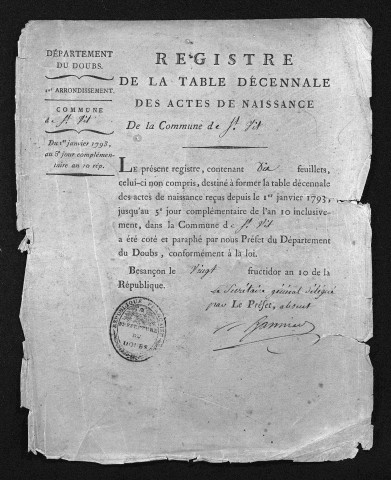 DÉPARTEMENT
DU DOUBS.
1er ARRONDISSEMENT.
COMMUNE
de St. Vit
Du 1er janvier 1793,
au 5e jour complémen-
taire an 10 rép.
REGISTRE
DE LA TABLE DÉCENNALE
DES ACTES DE NAISSANCE
De la Commune de St. Vit
LE présent registre, contenant Dix feuillets,
celui-ci non compris, destiné à former la table décennale
des actes de naissance reçus depuis le 1er janvier 1793,
jusqu'au 5e jour complémentaire de l'an 10 inclusive-
ment, dans la Commune de St. Vit
a été coté et paraphé par nous Préfet du Département
du Doubs, conformément à la loi.
Besançon le Vingt fructidor an 10 de la
République.
Le Secrétaire général délégué
par Le Préfet, absent
RÉPUBLIQUE FRANÇAISE
PRÉFECTURE
DU
DOUBS